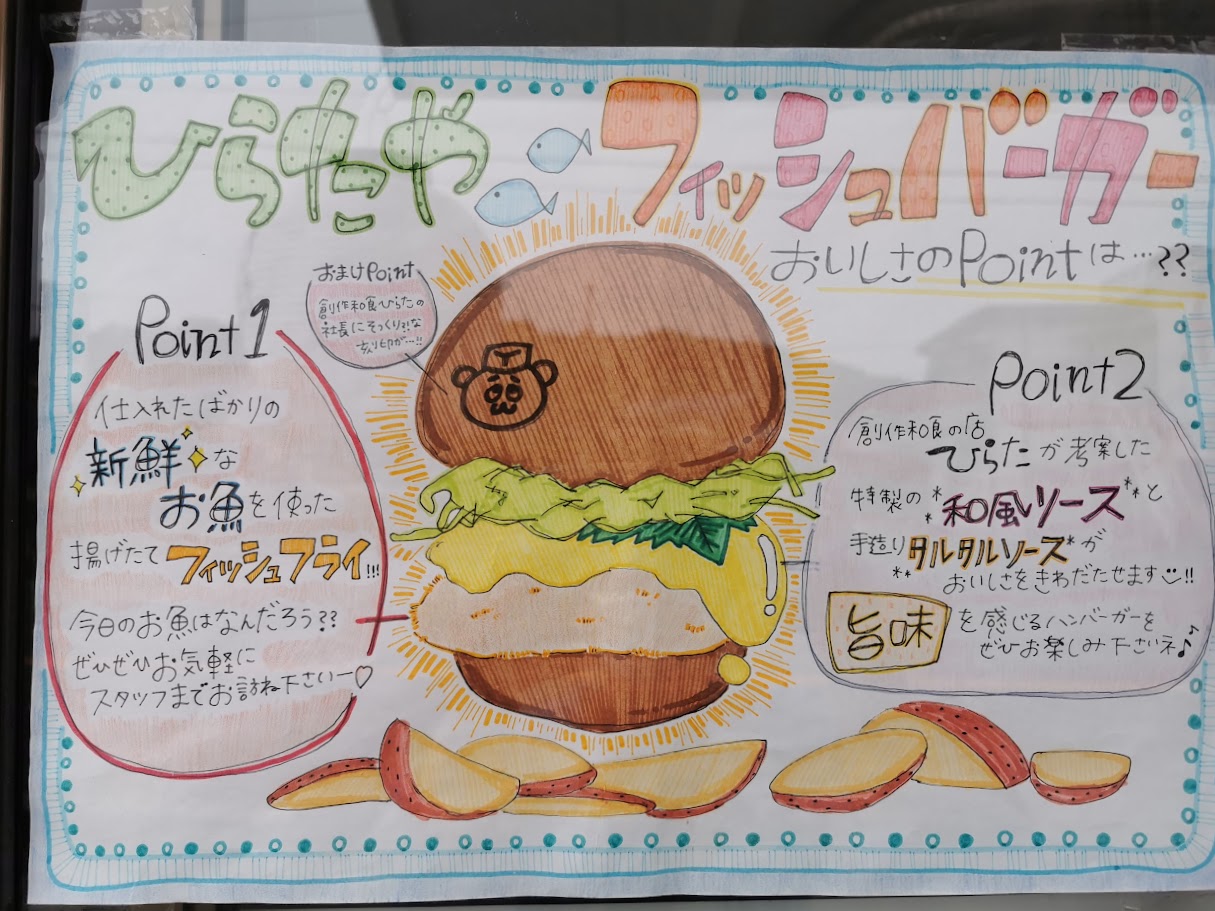 ひらたや フィッシュバーガー
おいしさのPointは…??
おまけPoint
創作和食ひらたの
社長にそっくり?!な
刻印が…!!
Point1
仕入れたばかりの
新鮮な
お魚を使った
揚げたてフィッシュフライ!!!
今日のお魚はなんだろう??
ぜひぜひお気軽に
スタッフまでお訪ね下さいー♡
Point2
創作和食の店
ひらたが考案した
特製の*和風ソース**と
手造りタルタルソース*が
**おいしさをきわだたせます!!
旨味を感じるハンバーガーを
ぜひお楽しみ下さいネ♪